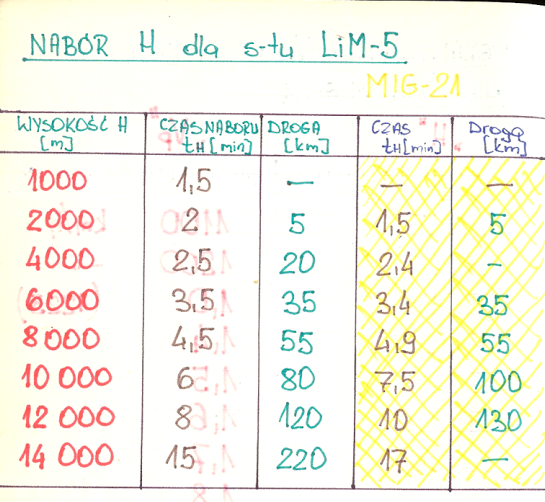 NABÓR H dla s-tu LiM-5
MIG-21
WYSOKOŚĆ H [m] CZAS NABORU tH [min] DROGA [km] CZAS tH [min] Droga [km]
1000 1,5 — — —
2000 2 5 1,5 5
4000 2,5 20 2,4 -
6000 3,5 35 3,4 35
8000 4,5 55 4,9 55
10 000 6 80 7,5 100
12 000 8 120 10 130
14 000 15 220 17 —